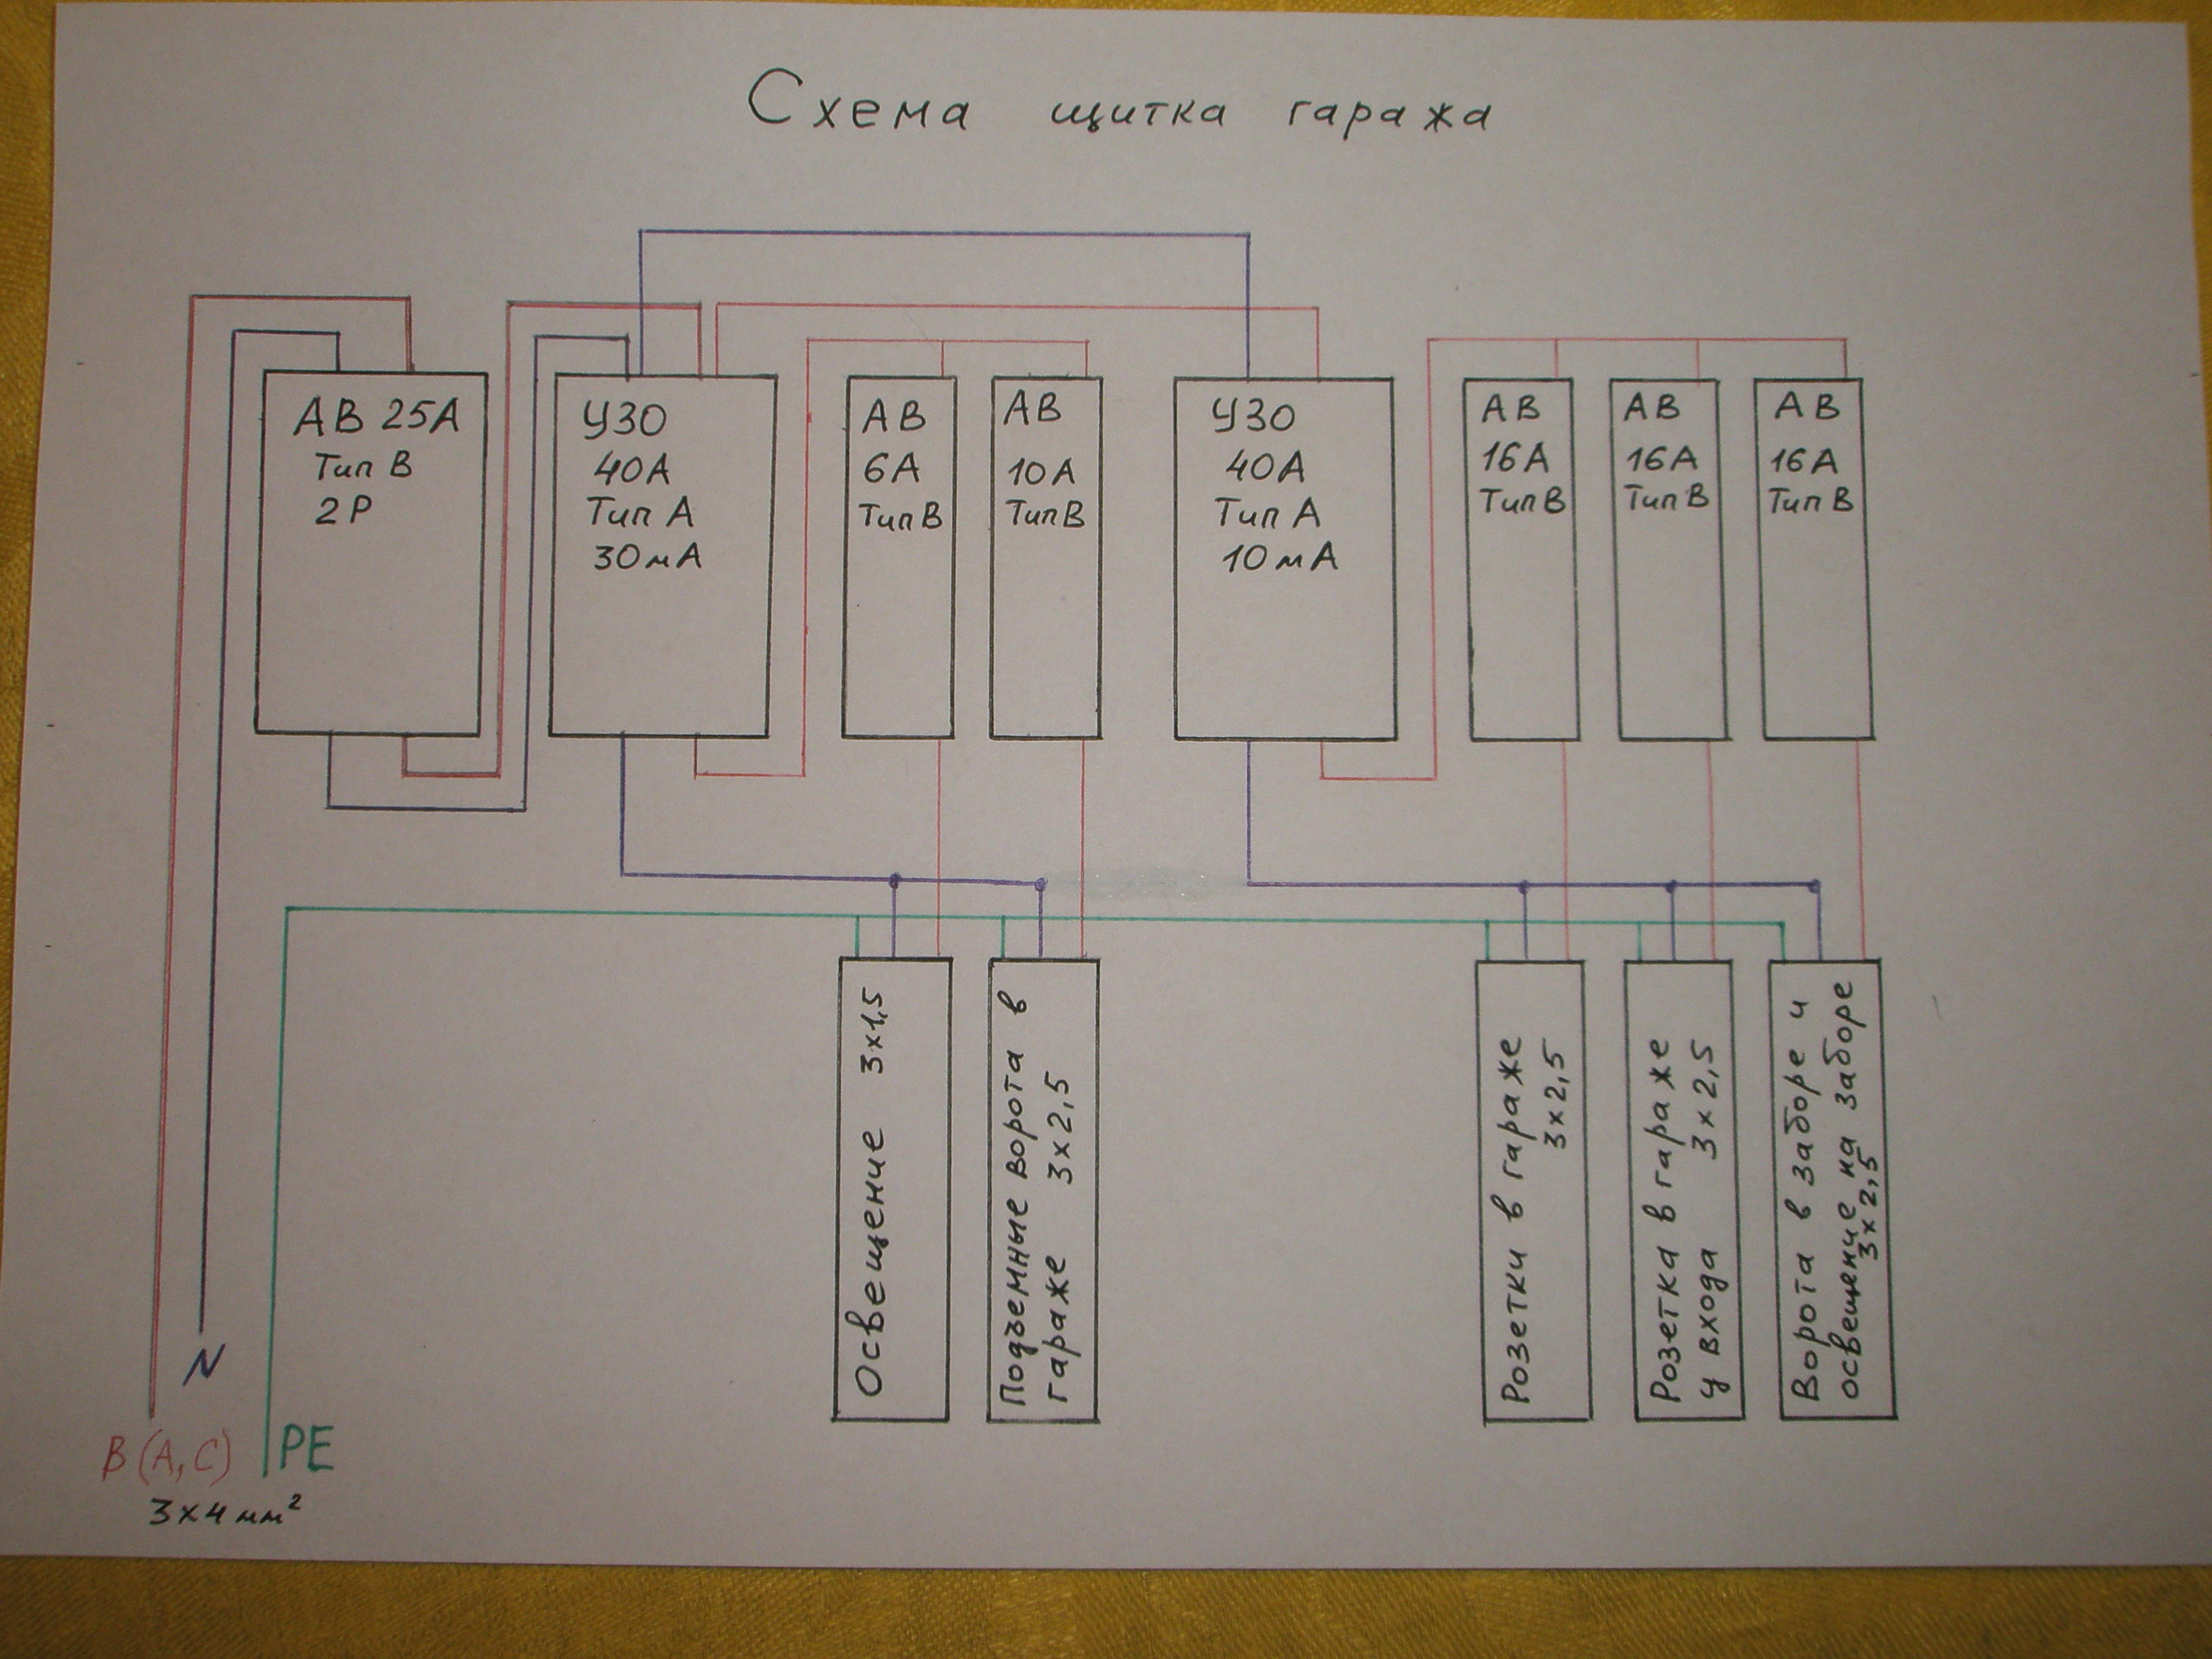 Схема щитка гаража
АВ 25А
Тип В
2Р
УЗО
40А
Тип А
30мА
АВ
6А
Тип В
АВ
10А
Тип В
УЗО
40А
Тип А
10мА
АВ
16А
Тип В
АВ
16А
Тип В
АВ
16А
Тип В
Освещение 3x1,5
Подъемные ворота в
гараже 3x2,5
Розетки в гараже
3x2,5
Розетка в гараже
у входа 3x2,5
Ворота в заборе и
освещение на заборе
3x2,5
N
В(А,С)
PE
3x4мм²